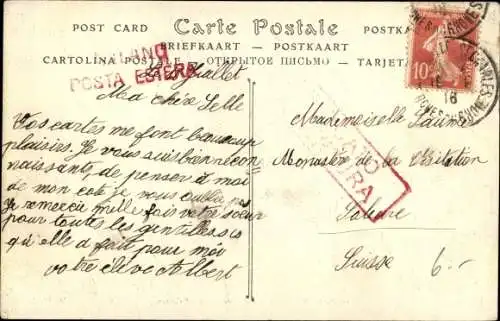 POST CARD Carte Postale POSTKA
BRIEFKAART - POSTKAART
CARTOLINA POSTALE ОТКРЫТОЕ ПИСЬМО - TARJETA
MILANO
POSTA ESTERA
Ma chère Selle
Vos cartes me font beaucoup
plaisirs. Je vous suis bonne con
naissants, de penser à moi
de mon coté je vous oublie pas
Je remercie mille fois votre soeur
pour toutes les gentilless es
qu'elle a fait pour moi
votre élève Albert
Mademoiselle Laure
Monastère de la Visitation
Soleure
Suisse
6.-
10
18